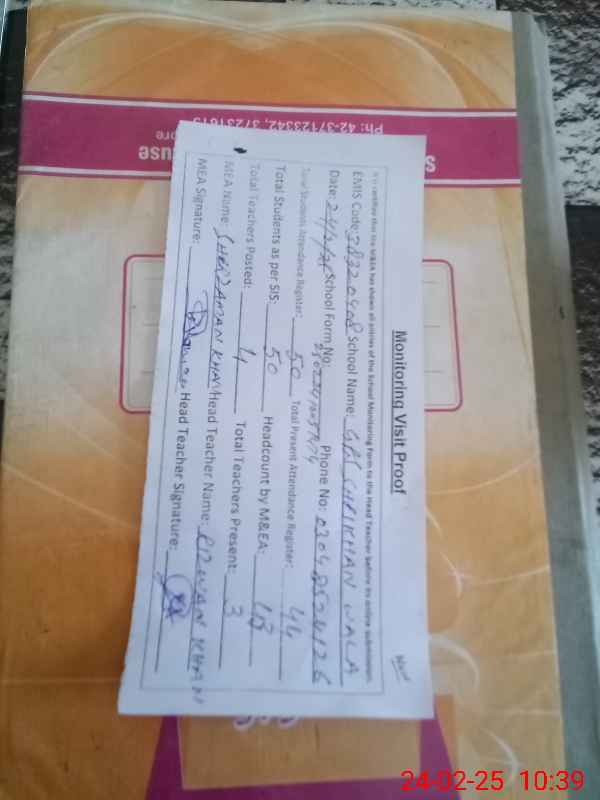 Monitoring Visit Proof
It is certified that the M&EA has shown all entries of the School Monitoring Form to the Head Teacher before its online submission.
EMIS Code: 38320408 School Name: GPS SHRIKHAN WALA
Date: 24/2/25 School Form No: Phone No:
Total Students Attendance Register: 50 Total Present Attendance Register: 44
Total Students as per SIS: 50 Headcount by M&EA:
Total Teachers Posted: 4 Total Teachers Present: 3
MEA Name: SHERZAMAN KHAN Head Teacher Name: RIZWAN KHAN
MEA Signature: Head Teacher Signature:
Ph: 42-37123342, 37231615
24-02-25 10:39